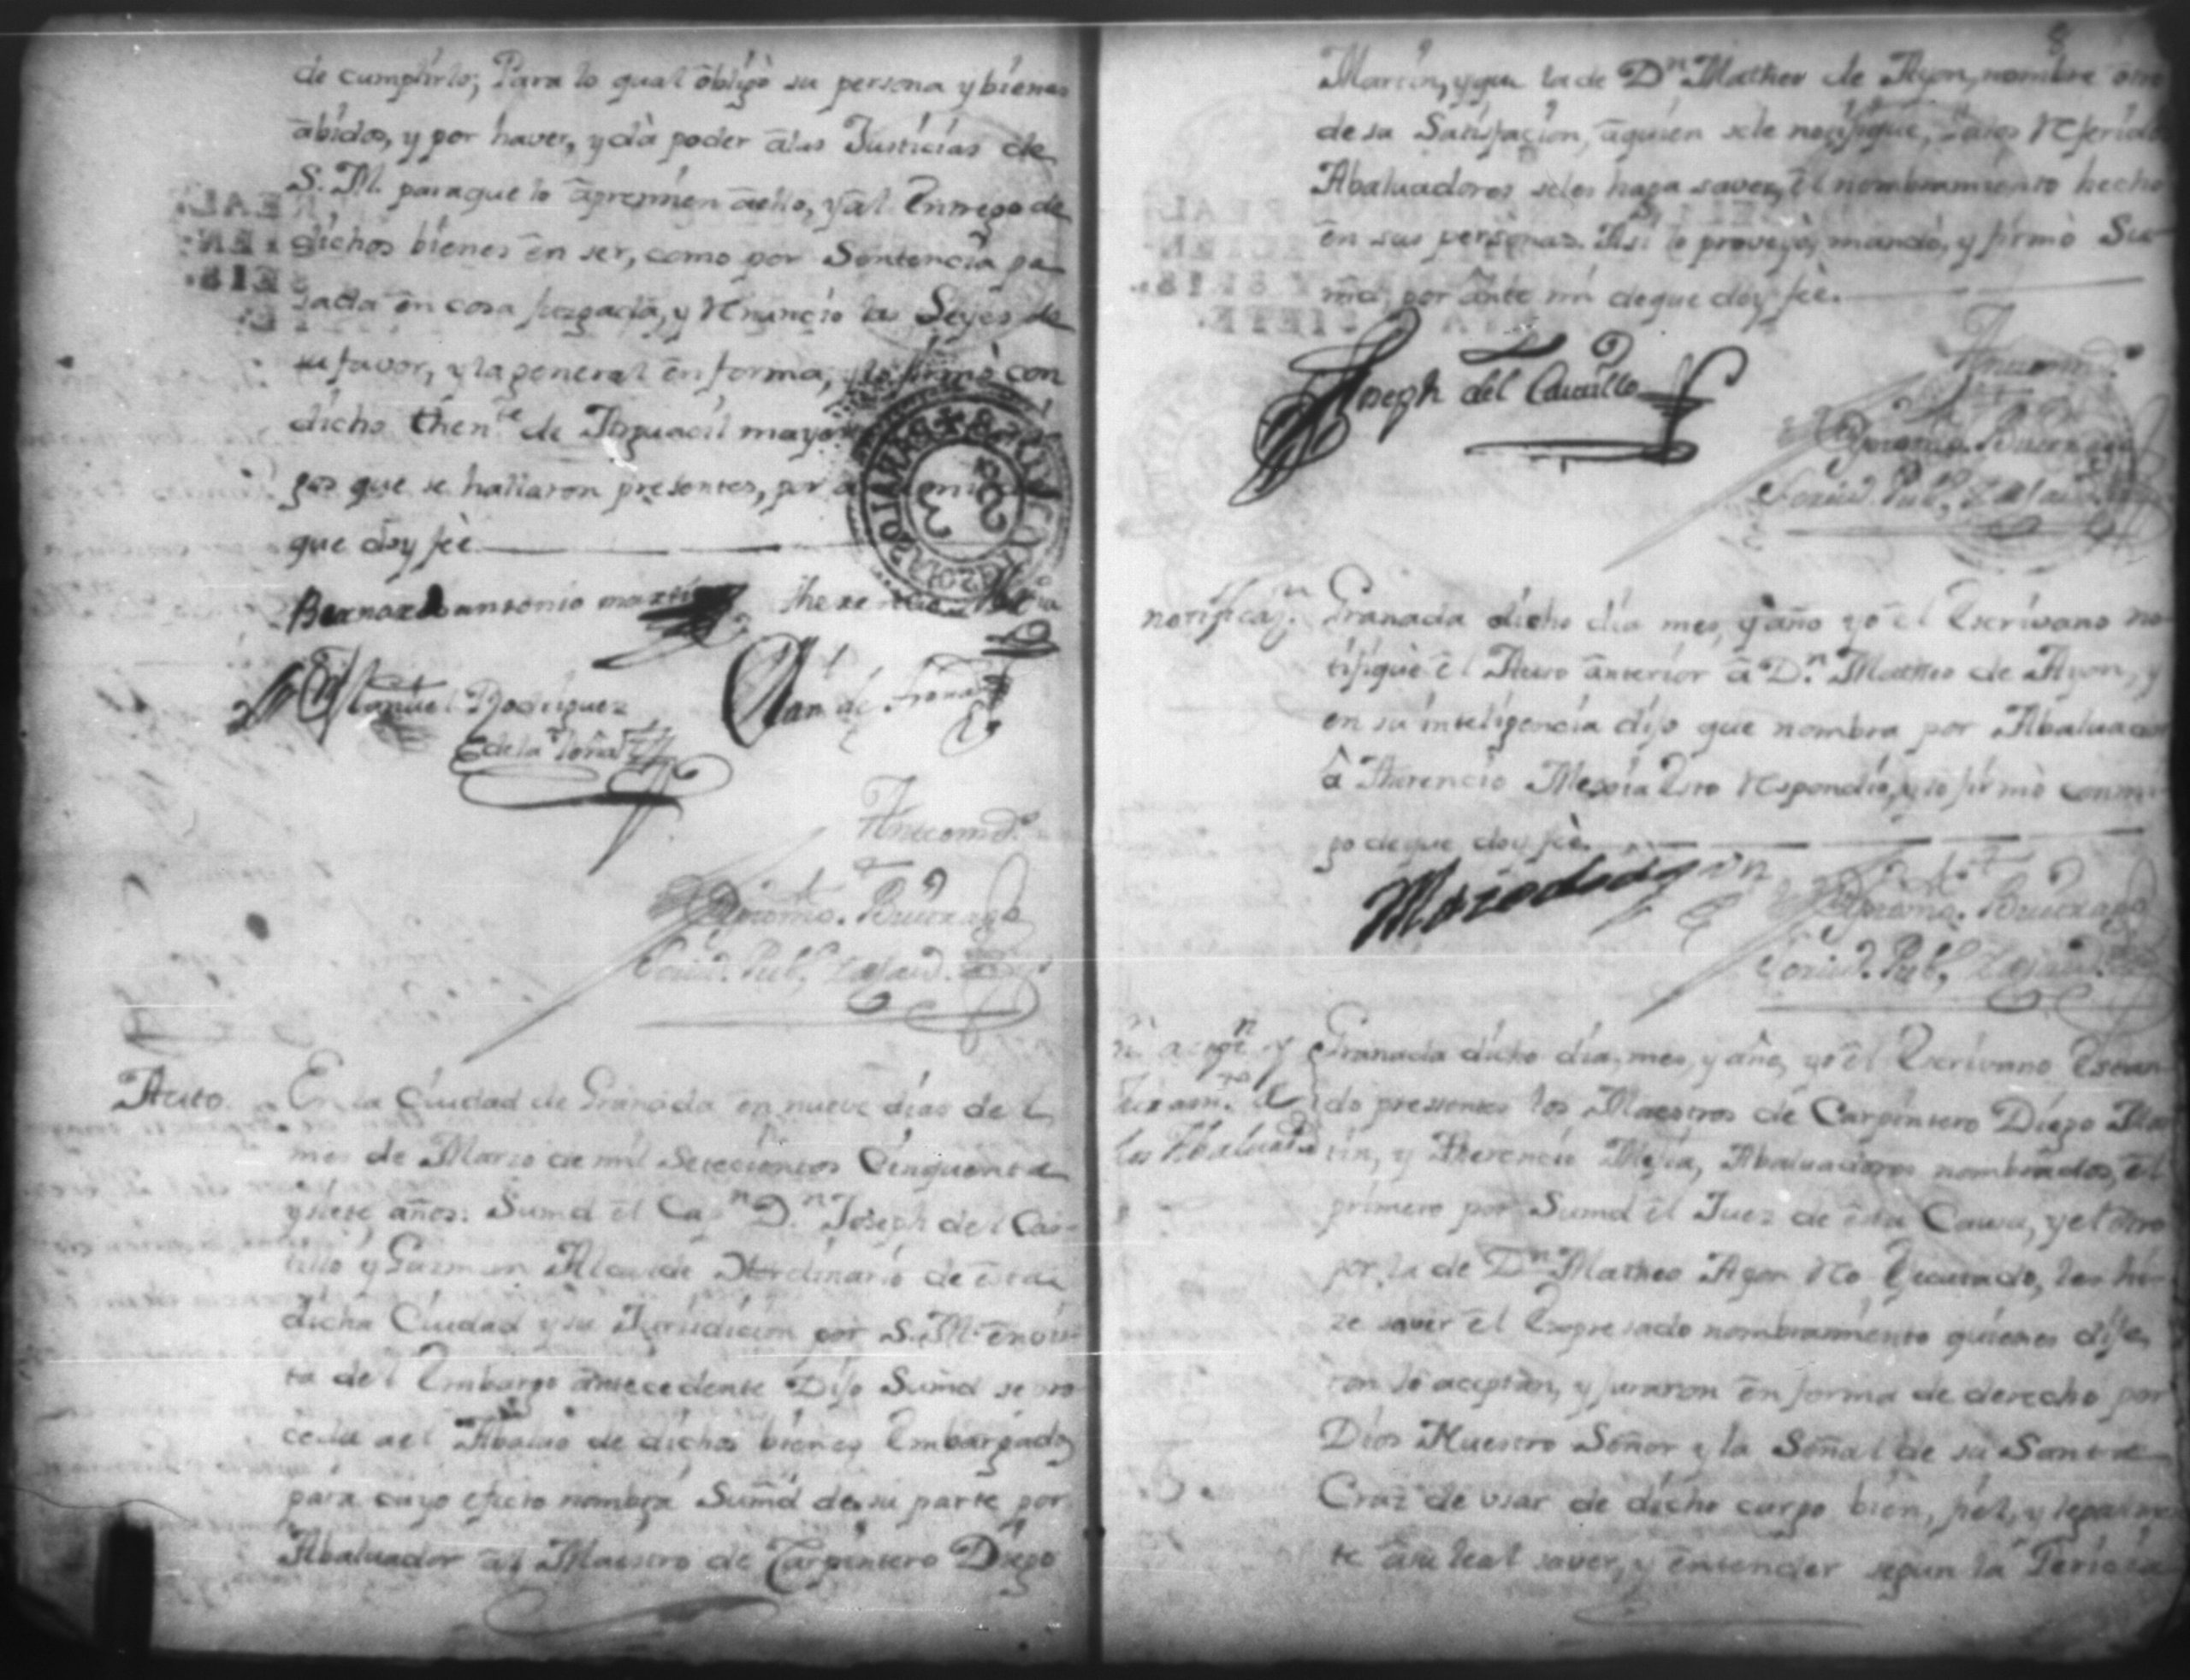 de cumplirlo; Para lo qual obligò su persona y bienes
abidos, y por haver, y dà poder a las Justicias de
S. M. para que lo apremien aello, y al Entrego de
dichos bienes en ser, como por Sentencia pa
sada en cosa juzgada, y Renunciò las Leyes de
su favor, y la general en forma, y lo firmò con
dicho theñte de Alguacil mayor
gos que se hallaron presentes, por
que doy feè
Bernardo antonio martin
therencio
Manuel Rodriguez
de la
Juan de
Antemi
Antonio. Buitrago
Scriv. Pub.
Auto.
En la Ciudad de Granada en nueve dias del
mes de Marzo de mil Setecientos Cinquenta
y siete años: Sumd el Capn Dn Joseph del Cas-
tillo y Guzman Alcalde Hordinario de esta
dicha Ciudad y su Jurisdicion por S. M. en vis-
ta del Embargo antecedente Dijo Sumd se pro
ceda ael Abaluo de dichos bienes Embargados
para cuyo efecto nombra Sumd de su parte por
Abaluador al Maestro de Carpintero Diego
Martin, y que la de Dn Matheo de Ayon, nombre otro
de su Satisfacion, aquien sele notifique, y alos Referidos
Abaluadores seles haga saver, el nombramiento hecho
en sus personas. Asi lo proveyò, mandò, y firmò Su
md, por ante mi de que doy feè.
Joseph del Castillo
Antemi
Antonio. Buitrago
Scriv. Pub.
notificazn.
Granada dicho dia mes, y año yo el Escrivano no
tifiquè el Auto anterior a Dn. Matheo de Ayon, y
en su inteligencia dijo que nombra por Abaluador
à Therencio Mesia Esto Respondio, y lo firmò conmi
go de que doy feè
Mateo de ayon
Antonio. Buitrago
Scriv. Pub.
los Abaluads
Granada dicho dia, mes, y año, yo el Escrivano Estan
do presentes los Maestros de Carpintero Diego Mar
tin, y Therencio Mesia, Abaluadores nombrados, el
primero por Sumd el Juez de esta Causa, y el otro
por la de Dn Matheo Ayon Reo Executado, les hi-
ze saver el Expresado nombramiento quienes dije
ron lo aceptan, y juraron en forma de derecho por
Dios Nuestro Señor y la Señal de su Santa
Cruz de usar de dicho cargo bien, fiel, y legalmen
te a su leal saver, y entender segun la Pericia